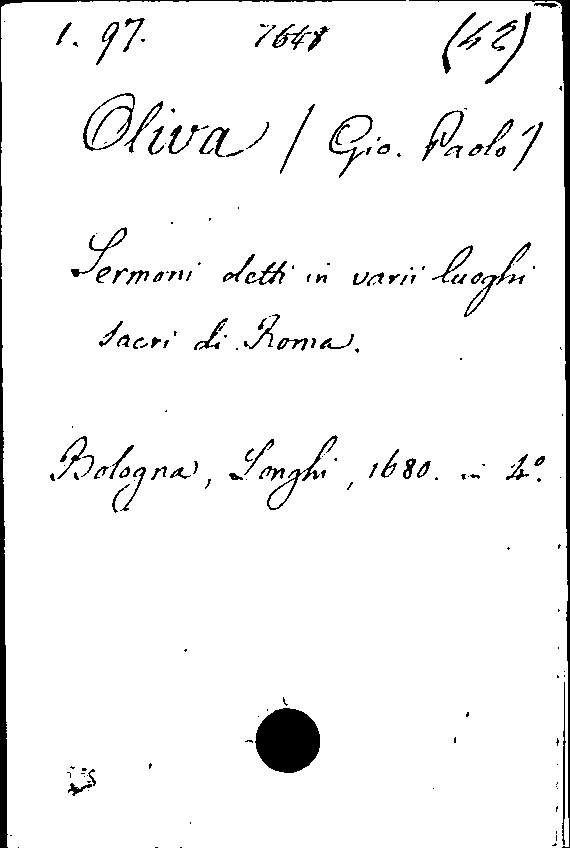 1. 97. 7648 (42)
Oliva / Gio. Paolo /
Sermoni detti in varii luoghi
sacri di Roma.
Bologna, Longhi, 1680. in 4º.